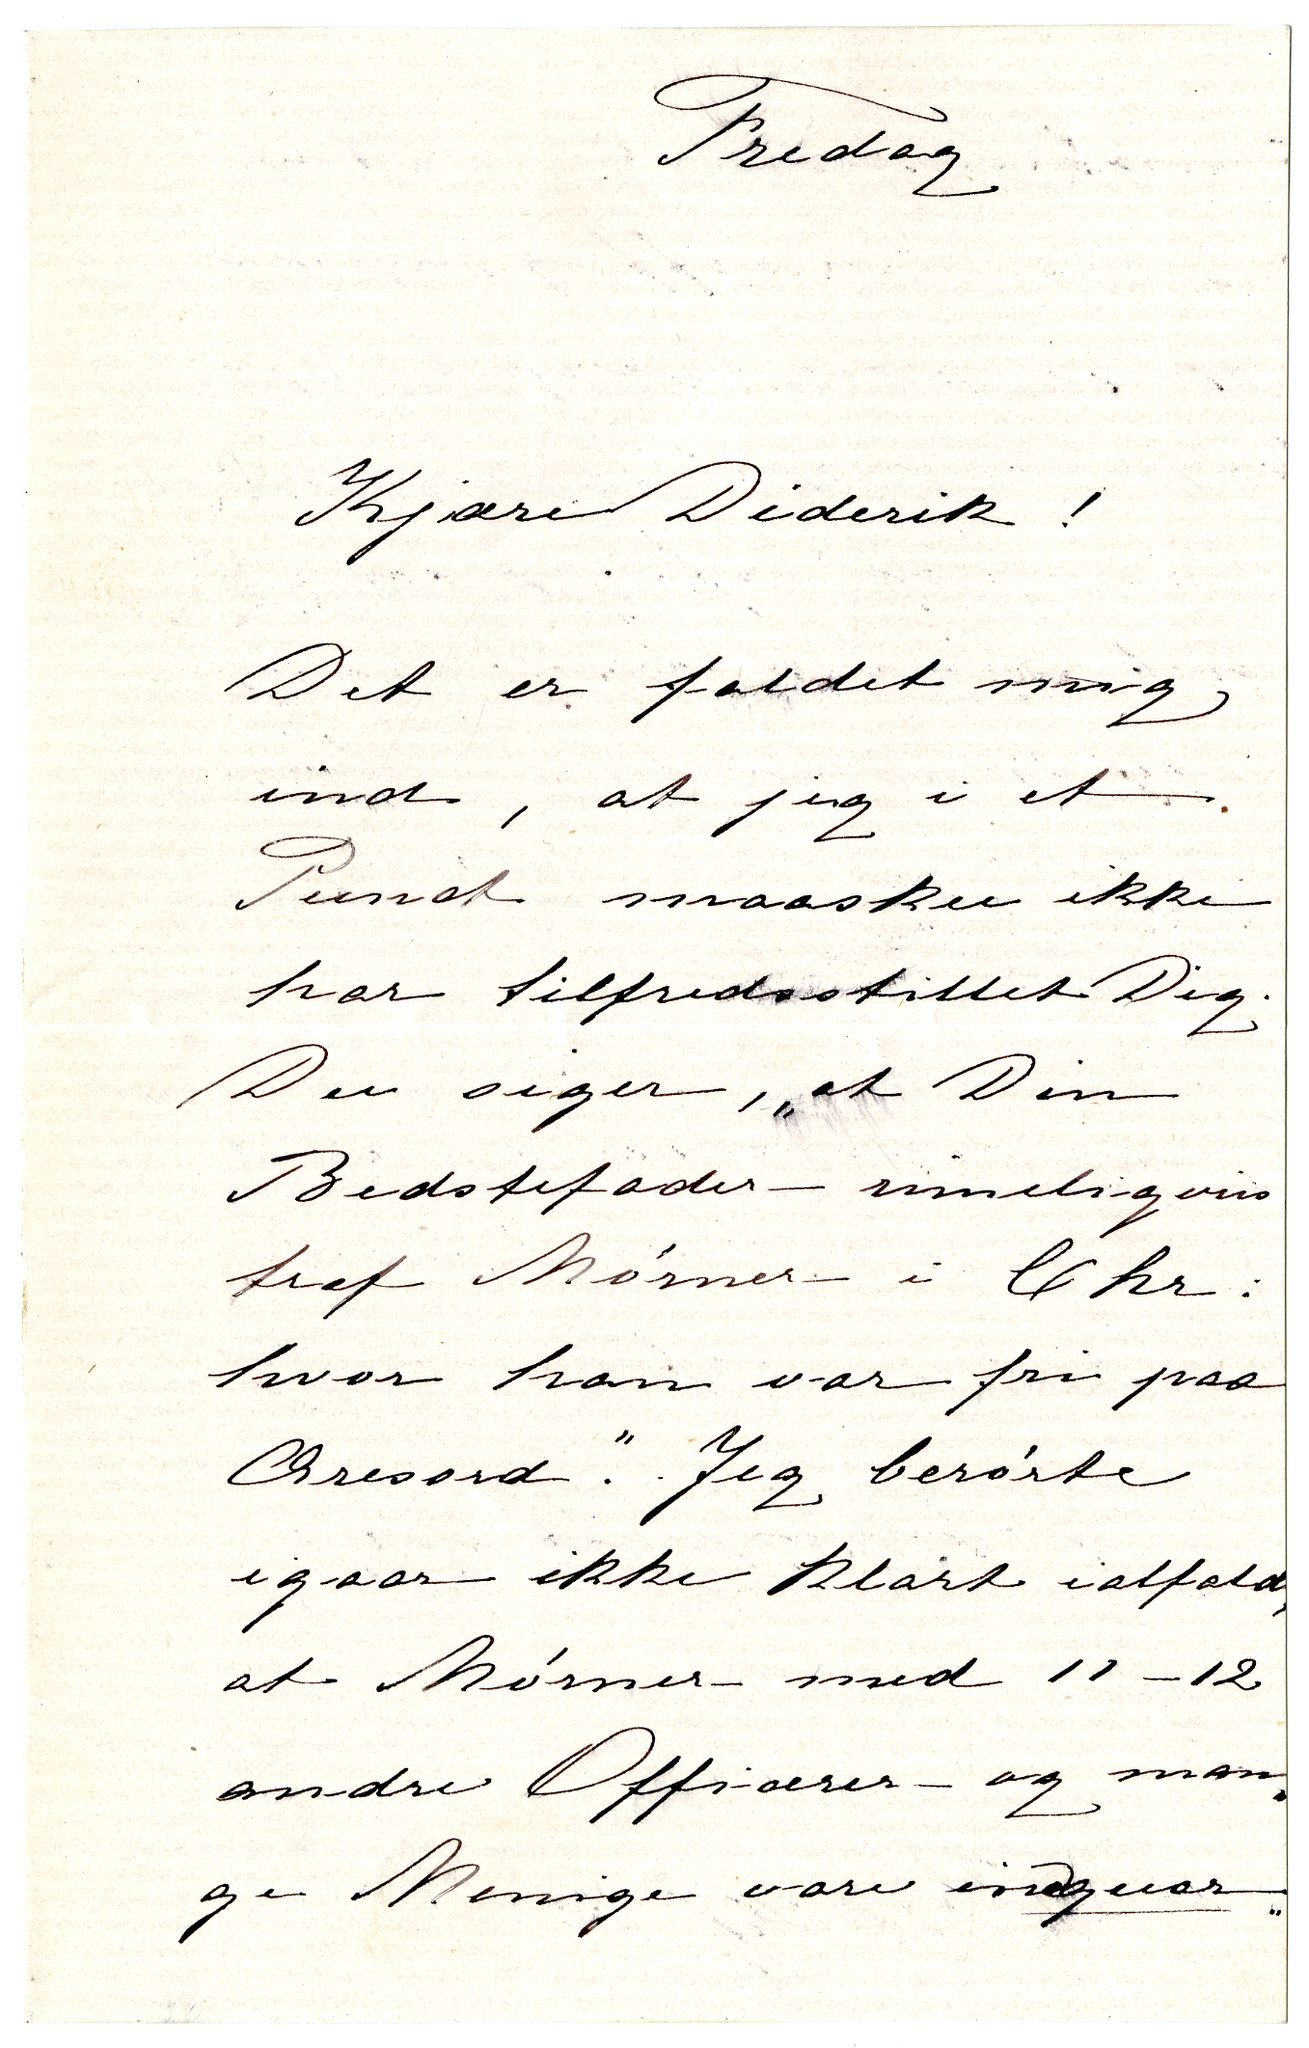 Fredag
Kjære Diderik !
Det er faldet mig
ind, at jeg i et
Punct maaskee ikke
har tilfredsstillet Dig.
Du siger, „at Din
Bedstefader rimeligviis
traf Mörner i Chr:
hvor han var fri paa
Æresord". Jeg berörte
igaar ikke klart ialfald,
at Mörner med 11-12
andre Officerer og man„
ge Menige vare indquar„